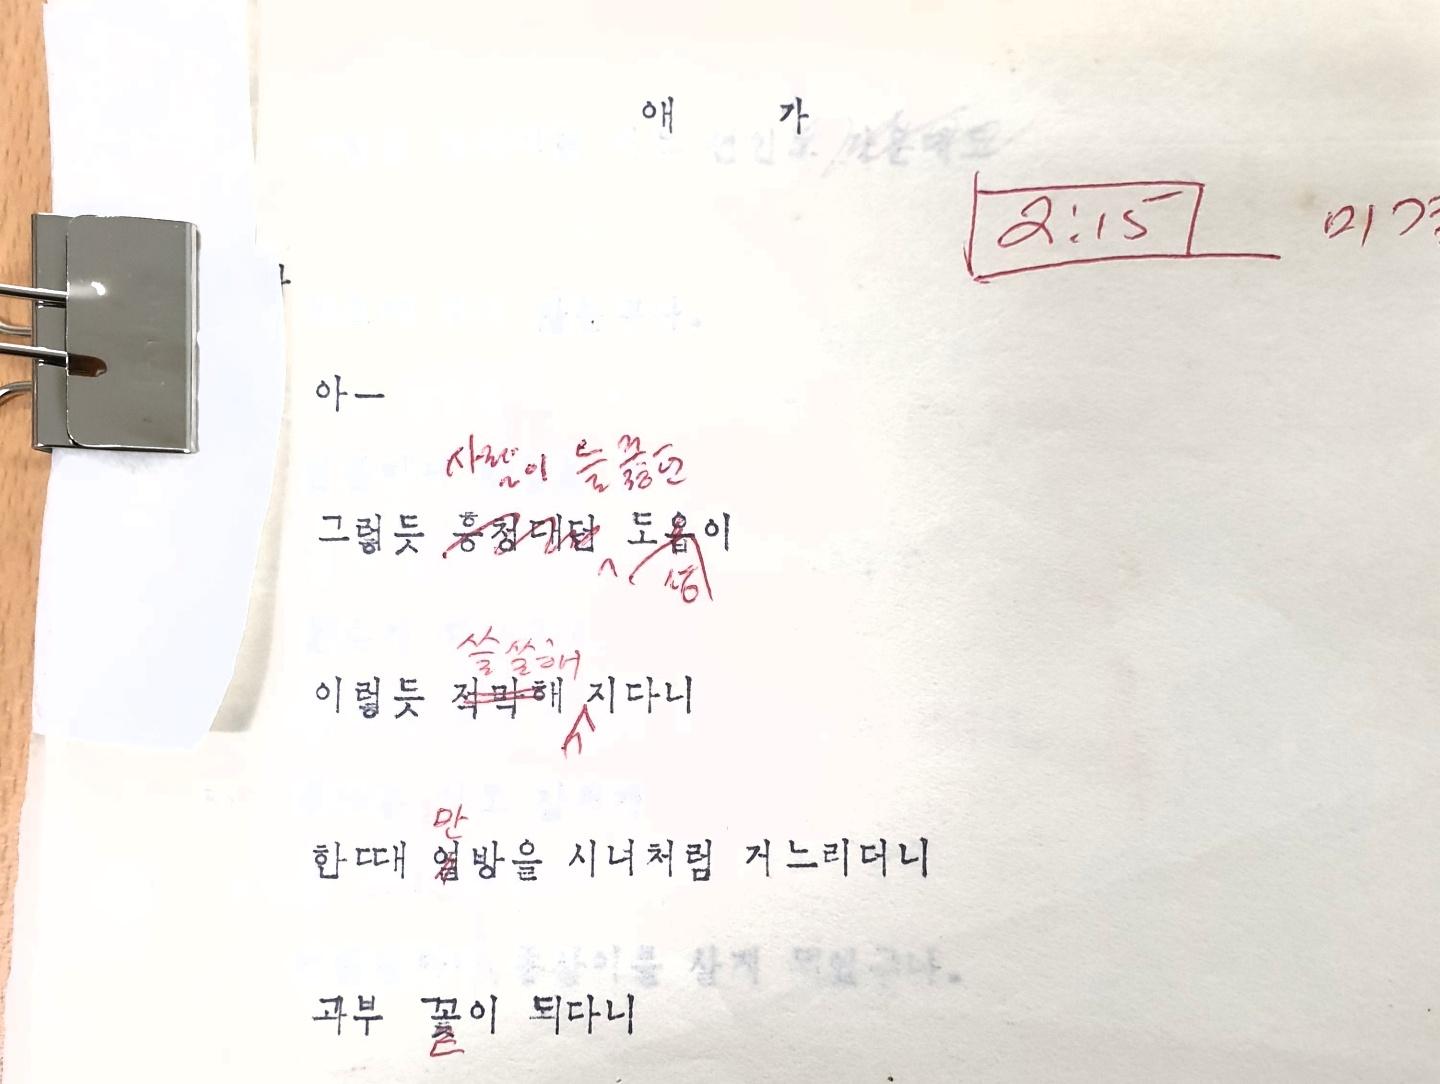 애 가
2:15
아—
사람이 들끓던
그렇듯 흥청대던 도읍이
성
쓸쓸해
이렇듯 적막해 지다니
만
한때 열방을 시녀처럼 거느리더니
과부 꼴이 되다니